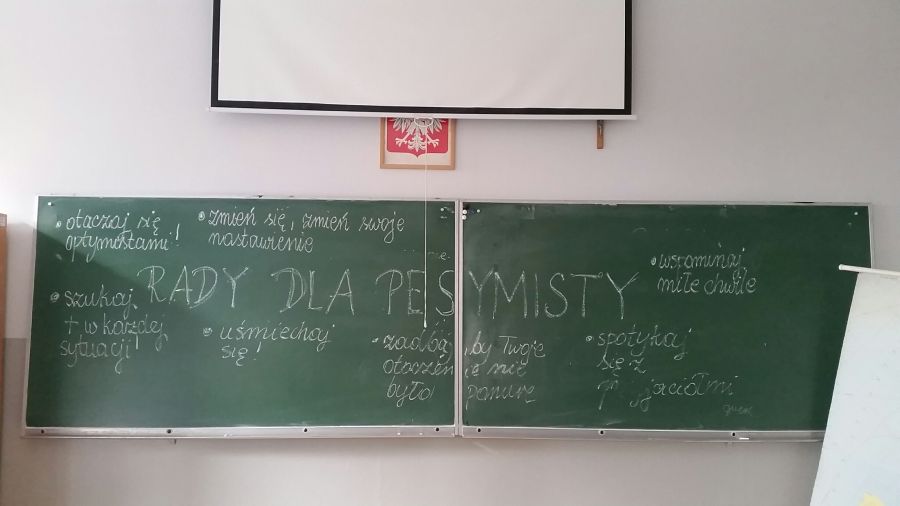 • otaczaj się
optymistami!
• zmień się, zmień swoje
nastawienie
RADY DLA PESYMISTY
• wspominaj
miłe chwile
• szukaj
+ w każdej
sytuacji
• uśmiechaj
się
• zadbaj, by Twoje
otoczenie nie
było ponure
• spotykaj
się z
p jaciółmi